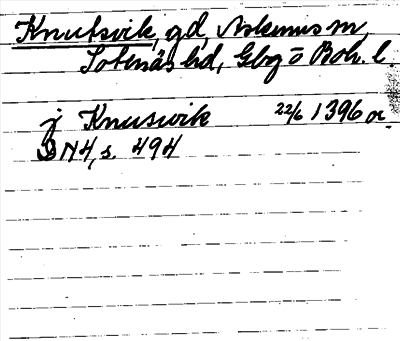 Knutsvik, gd, Askums sn,
Sotenäs hd, Gbg o Boh. l.
j Knuswik 22/6 1396 or.
DN4, s. 494